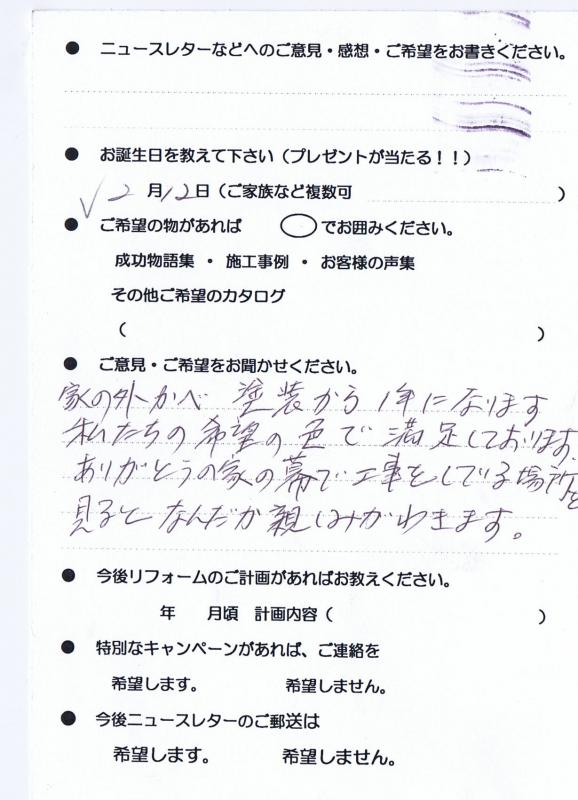 ● ニュースレターなどへのご意見・感想・ご希望をお書きください。
● お誕生日を教えて下さい（プレゼントが当たる！！）
✓ 2月12日（ご家族など複数可　　　）
● ご希望の物があれば　◯でお囲みください。
成功物語集 ・ 施工事例 ・ お客様の声集
その他ご希望のカタログ
（　　　）
● ご意見・ご希望をお聞かせください。
家の外かべ 塗装から 1年になります
私たちの希望の色で 満足しております。
ありがとうの家の幕で工事をしている場所を
見ると なんだか親しみがわきます。
● 今後リフォームのご計画があればお教えください。
年　　月頃　計画内容（　　　）
● 特別なキャンペーンがあれば、ご連絡を
希望します。　　希望しません。
● 今後ニュースレターのご郵送は
希望します。　　希望しません。